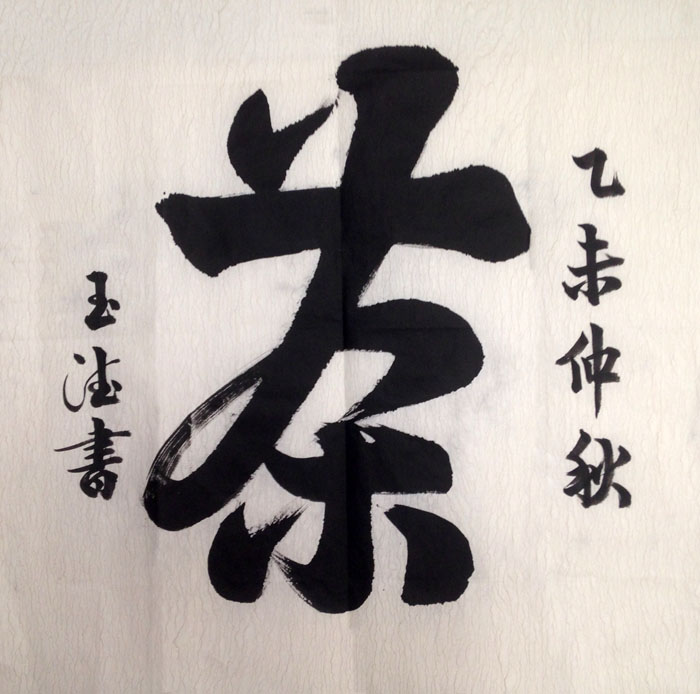 乙未仲秋
茶
玉德書